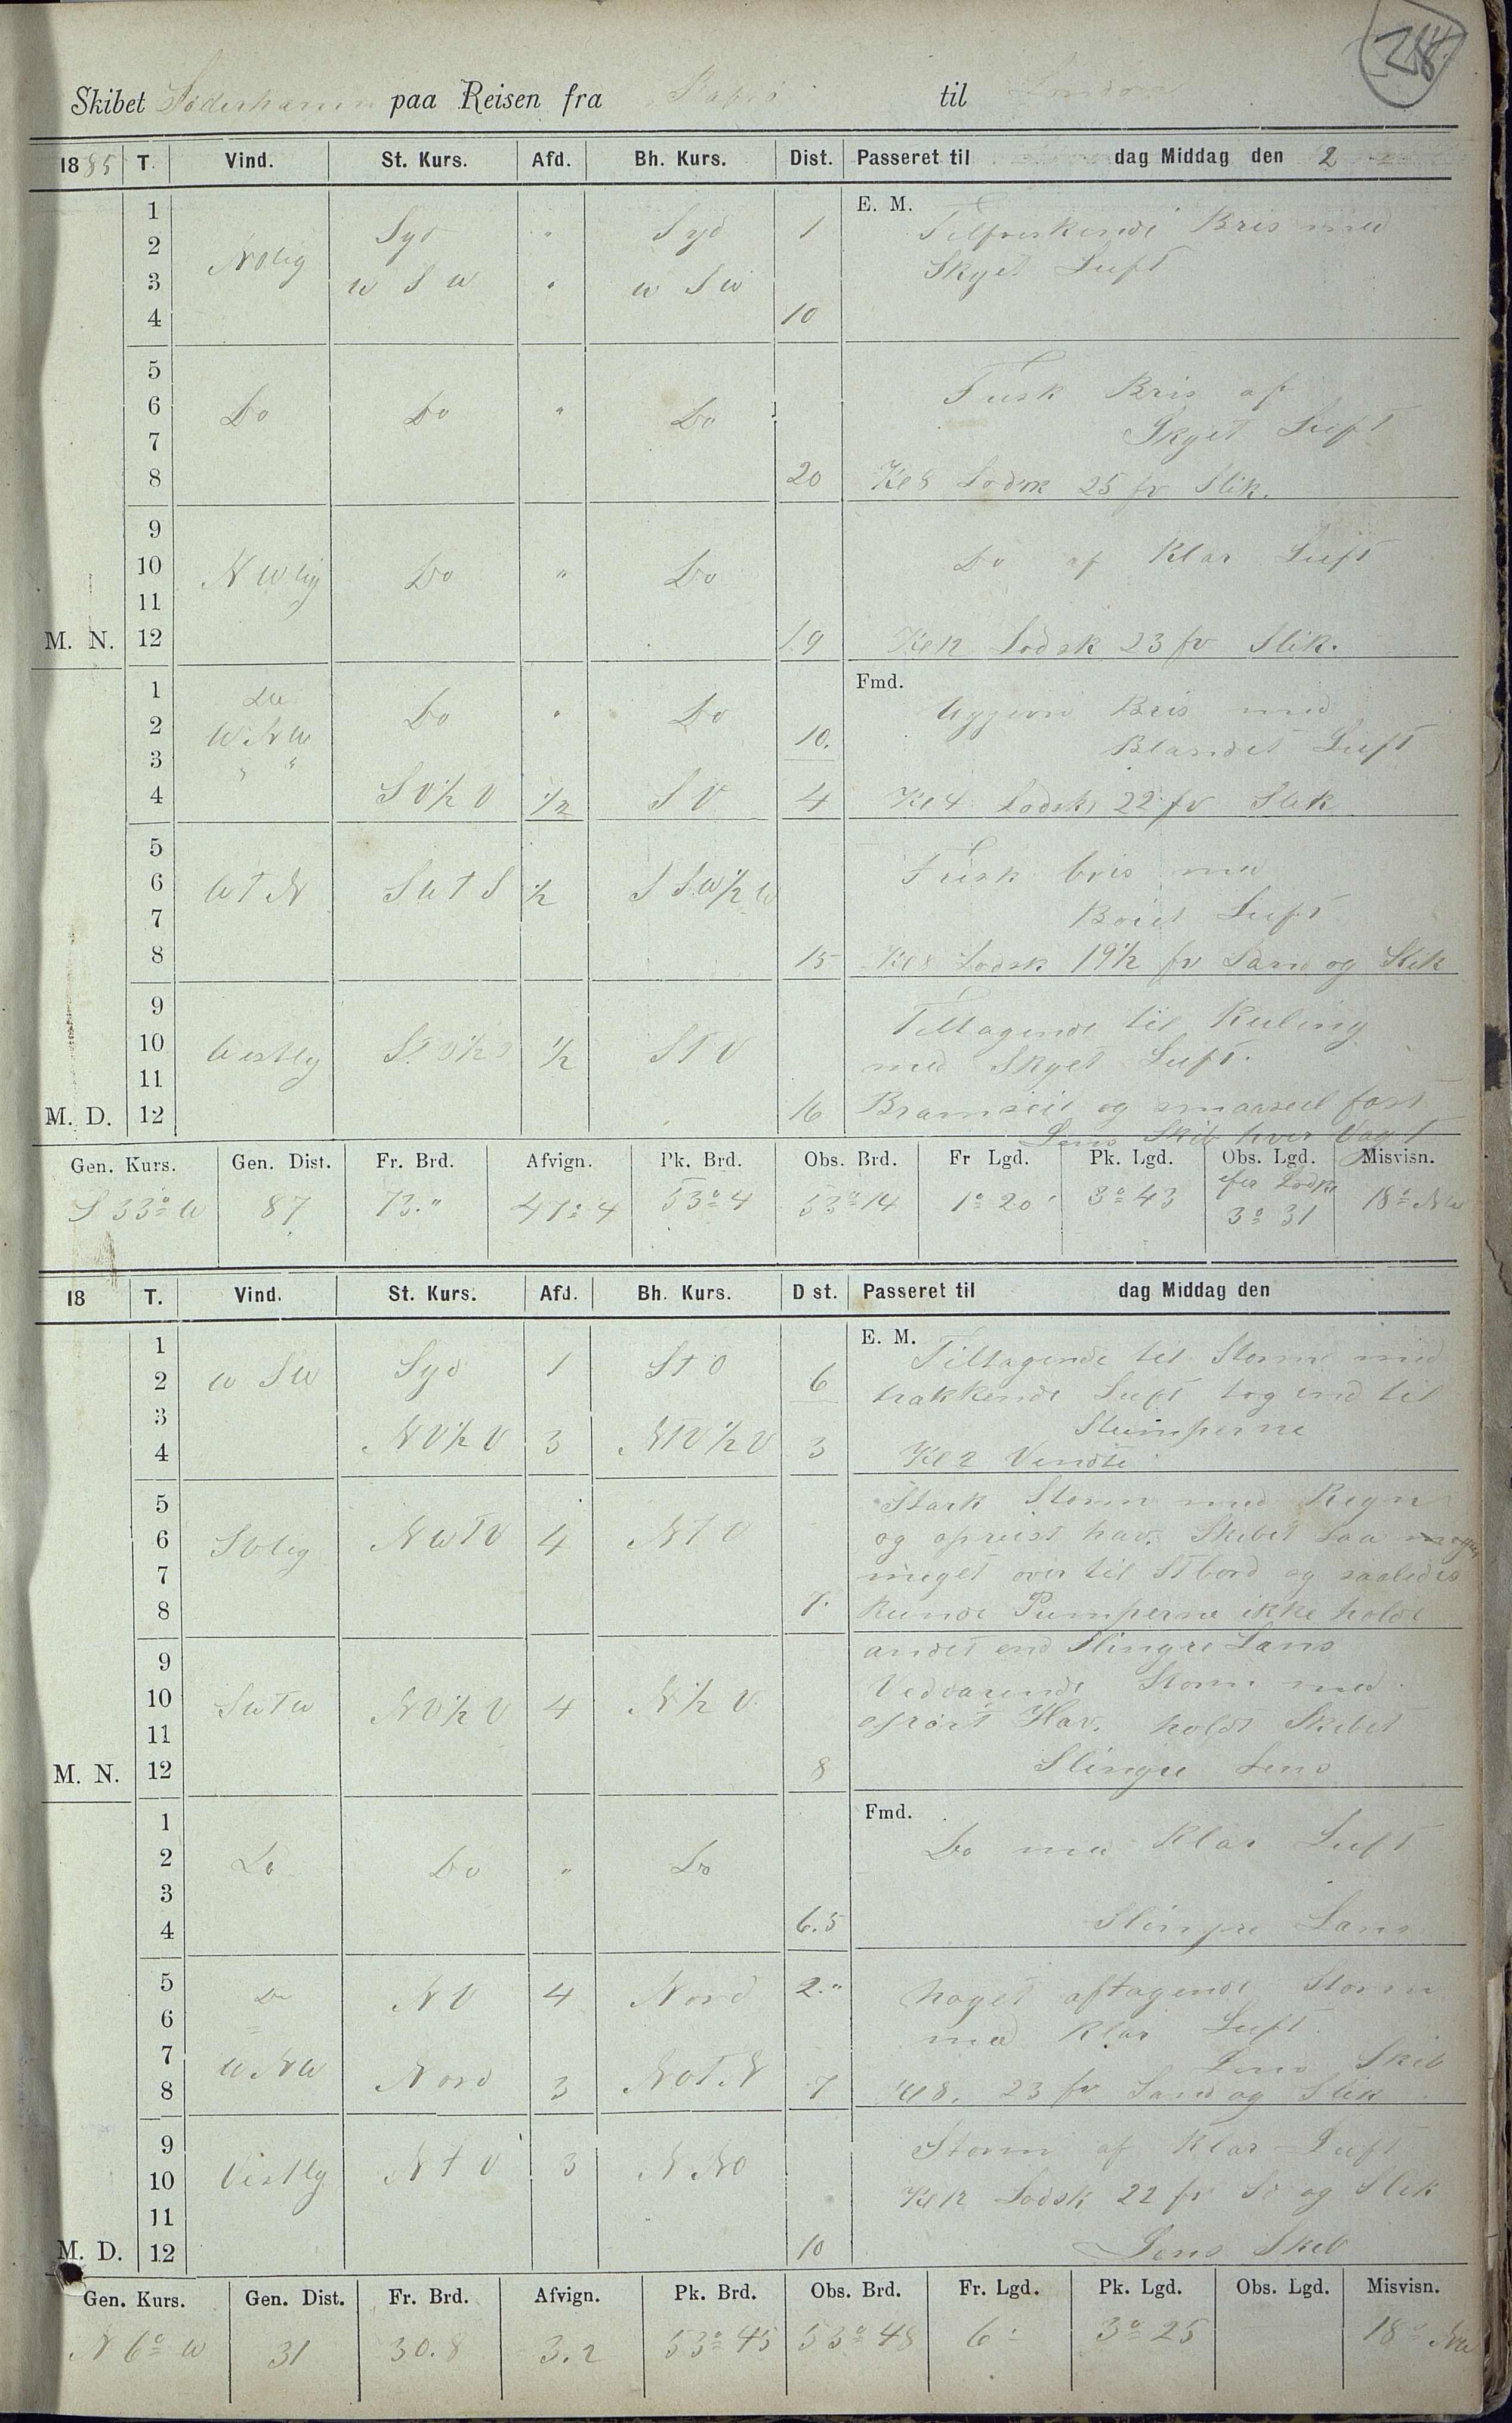 284.
Skibet Söderhamn paa Reisen fra til London
1885 T. Vind. St. Kurs. Afd. Bh. Kurs. Dist. Passeret til dag Middag den 2
1 Syd " Syd 1 E. M. Tilfriskende Bris med
2 NOlig Skyet Luft
3 W S W " W S W
4 10
5
6 Do Do " Do Frisk Bris af
7 Skyet Luft
8 20 Kl 8 Lodsk 25 fv Slik.
9
10 N W lig Do " Do Do af Klar Luft
11
M. N. 12 19 Kl 12 Lodsk 23 fv Slik.
1 Do Do " Do Fmd. Bris med
2 W N W 10. Blandet Luft
3 " "
4 S V ½ V ½ S V 4 Kl 4 Lodsk 22 fv Slik
5
6 W T N S W T S ½ S S W ½ W Frisk bris med
7 Luft
8 15 Kl 8 Lodsk 19½ fv Sand og Slik
9
10 Vestlig ½ S T V Tiltagende til Kuling
11 med Skyet Luft.
M. D. 12 16 Bramseil og smaaseil fast
Lens Skib hver Vagt
Gen. Kurs. Gen. Dist. Fr. Brd. Afvign. Pk. Brd. Obs. Brd. Fr Lgd. Pk. Lgd. Obs. Lgd. Misvisn.
S 33° W 87 73." 47:4 53° 4 53° 14 1° 20' 3° 43 efter Lodsk 3° 31 18° NW
18 T. Vind. St. Kurs. Afd. Bh. Kurs. Dist. Passeret til dag Middag den
1 E. M. Tiltagende til Storm med
2 W S W Syd 1 S T O 6 trækkende Luft tog ind til
3 Stumperne
4 N V ½ V 3 N T V ½ V 3 Kl 2 Vendte
5 Stærk Storm med Regn
6 SVlig N W T V 4 N T V og oprørt hav. Skibet laa meget
7 meget over til St bord og saaledes
8 7. kunde Pumperne ikke holde
9 andet end Slingre Læns
10 S W T W N V ½ V 4 N ½ V Vedvarende Storm med
11 oprørt Hav. holdt Skibet
M. N. 12 8 Slingre Lens
1 Fmd.
2 Do Do " Do Do med Klar Luft
3
4 6.5 Slingre Læns
5 Do N V 4 Nord 2." Noget aftagende Storm
6 med Klar Luft.
7 W N W Lens Skib
8 Nord 3 N O T N 7 Kl 8. 23 fv Sand og Slik
9 Storm af Klar Luft
10 Vestlig N T V 3 N N O Kl 12 Lodsk 22 fv Sd og Slik
11
M. D. 12 10 Lens Skib
Gen. Kurs. Gen. Dist. Fr. Brd. Afvign. Pk. Brd. Obs. Brd. Fr. Lgd. Pk. Lgd. Obs. Lgd. Misvisn.
N 6° W 31 30.8 3.2 53° 45 53° 48 6' 3° 25 18° NW